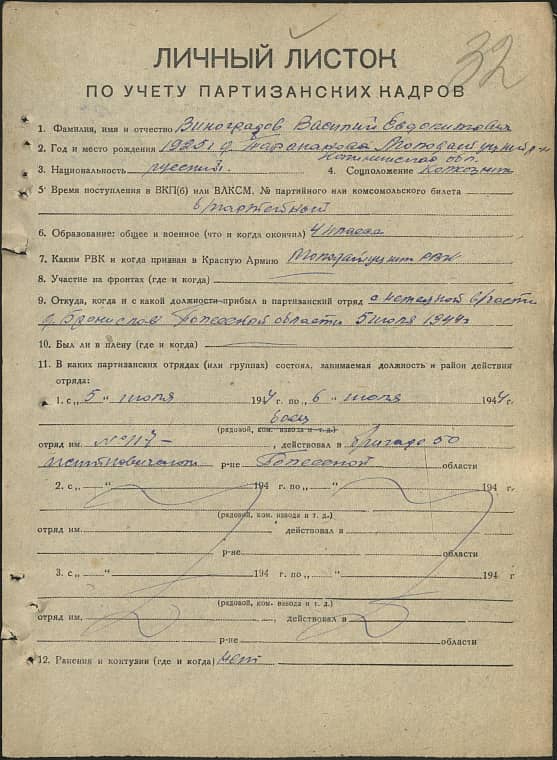 32
ЛИЧНЫЙ ЛИСТОК
ПО УЧЕТУ ПАРТИЗАНСКИХ КАДРОВ
1. Фамилия, имя и отчество Виноградов Василий Евдокимович
2. Год и место рождения 1925 г. д.
обл.
3. Национальность русский. 4. Соцположение Колхозник
5. Время поступления в ВКП(б) или ВЛКСМ, № партийного или комсомольского билета
б/партейный
6. Образование: общее и военное (что и когда окончил) 4 класса
7. Каким РВК и когда призван в Красную Армию РВК
8. Участие на фронтах (где и когда)
9. Откуда, когда и с какой должности прибыл в партизанский отряд с немецкой
д. Бронислав Полесской области 5 июля 1944 г
10. Был ли в плену (где и когда)
11. В каких партизанских отрядах (или группах) состоял, занимаемая должность и район действия
отряда:
1. с „5" июля 1944 г. по „6" июля 1944 г.
боец
(рядовой, ком. взвода и т. д.)
отряд им. № 117 – , действовал в бригаде 50
р-не Полесской области
2. с „ " 194 г. по „ " 194 г.
(рядовой, ком. взвода и т. д.)
отряд им. действовал в
р-не области
3. с „ " 194 г. по „ " 194 г
(рядовой, ком. взвода и т. д.)
отряд им. , действовал в
р-не области
12. Ранения и контузии (где и когда) нет